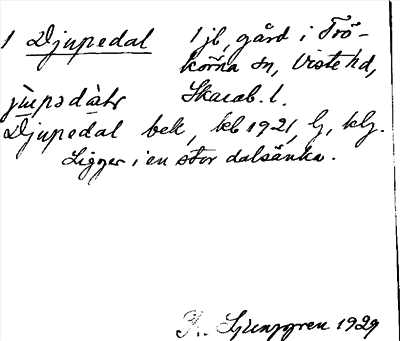 1 Djupedal 1 jb, gård i Trö-
körna sn, Viste hd,
Skarab. l.
Djupedal bek, keb 1921, lj, klg.
Ligger i en stor dalsänka.
R. Ljunggren 1929